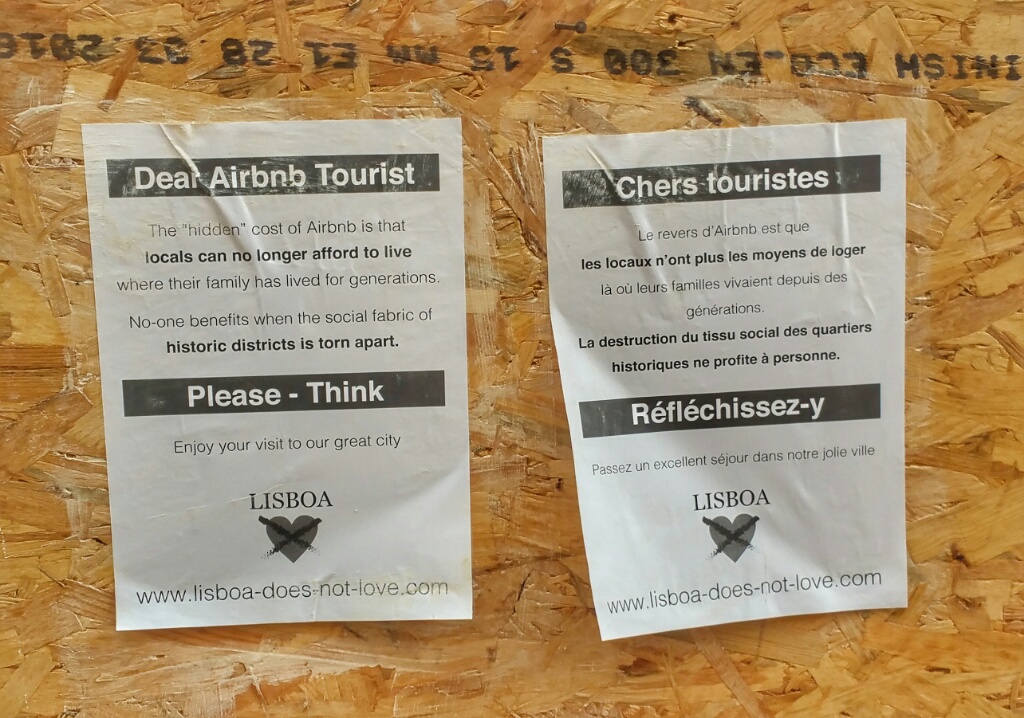 INISH ECO EN 300 S 15 MM E1 28.03.2016
Dear Airbnb Tourist
The "hidden" cost of Airbnb is that
locals can no longer afford to live
where their family has lived for generations.
No-one benefits when the social fabric of
historic districts is torn apart.
Please - Think
Enjoy your visit to our great city
LISBOA
www.lisboa-does-not-love.com
Chers touristes
Le revers d'Airbnb est que
les locaux n'ont plus les moyens de loger
là où leurs familles vivaient depuis des
générations.
La destruction du tissu social des quartiers
historiques ne profite à personne.
Réfléchissez-y
Passez un excellent séjour dans notre jolie ville
LISBOA
www.lisboa-does-not-love.com